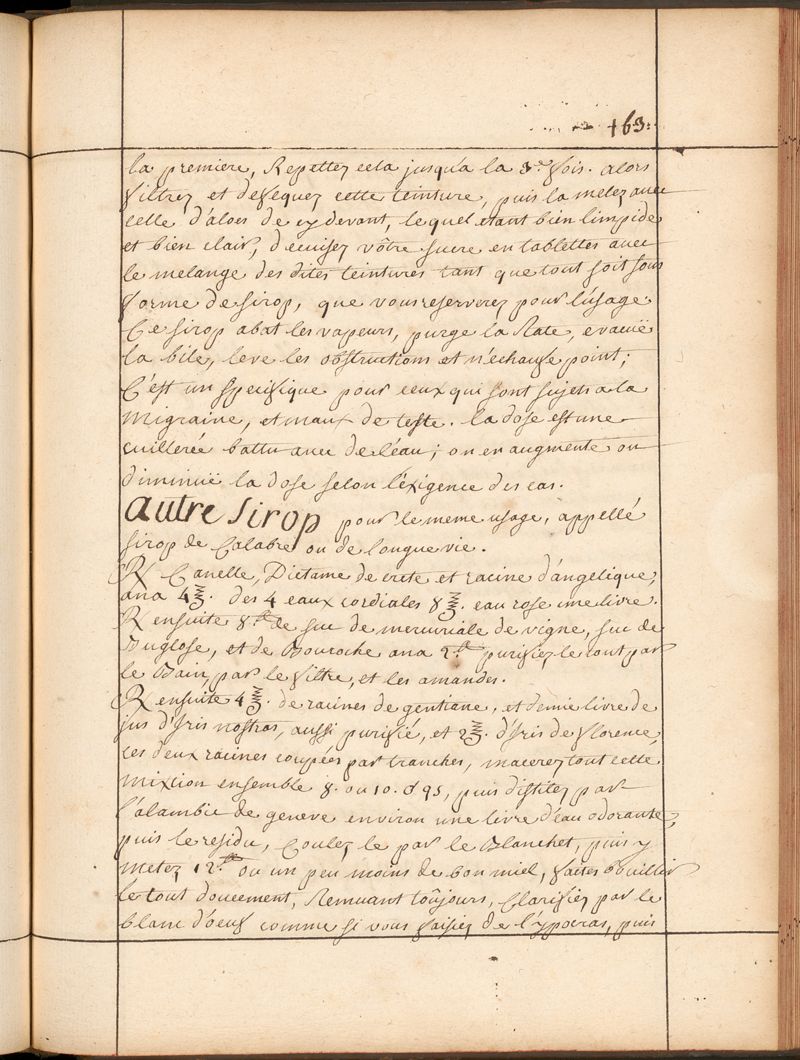 163.
la premiere, Repettez cela jusqu'a la 3.e fois. alors
filtrez et defequez cette teinture, puis la metez avec
celle d'aloes de cy devant, lequel etant bien limpide
et bien clair, decuisez vôtre sucre en tablettes avec
le melange des dites teintures tant que tout soit sous
forme de sirop, que vous reserverez pour l'usage
Ce sirop abat les vapeurs, purge la Rate, evacuë
la bile, leve les obstructions et n'echaufe point;
C'est un specifique pour ceux qui sont sujets a la
Migraine, et maux de teste. la dose est une
cuillerée battu avec de l'eau; on en augmente ou
diminuë la dose selon l'exigence des cas.
autre sirop pour le meme usage, appellé
sirop de Calabre ou de longue vie.
℞ Canelle, Dictame de crete et racine d'angelique,
ana 4 ℥. des 4 eaux cordiales 8 ℥. eau rose une livre.
℞ ensuite 8. de suc de mercuriale de vigne, suc de
Buglose, et de Bouroche ana 2. purifiez le tout par
le Bain, par le filtre, et les amandes.
℞ ensuite 4 ℥. de racines de gentiane, et demie livre de
jus d'Iris nostras, aussi purifié, et 2 ℥. d'Iris de florence,
ces deux racines coupées par tranches, macerez tout cette
mixtion ensemble 8. ou 10. puis distilez par
l'alambic de geneve environ une livre d'eau odorante,
puis le residu, Coulez le par le Blanchet, puis y
metez 12. ou un peu moins de bon miel, faites bouillir
le tout doucement, Remuant toûjours, Clarifiez par le
blanc d'oeuf comme si vous faisiez de l'ypocras, puis